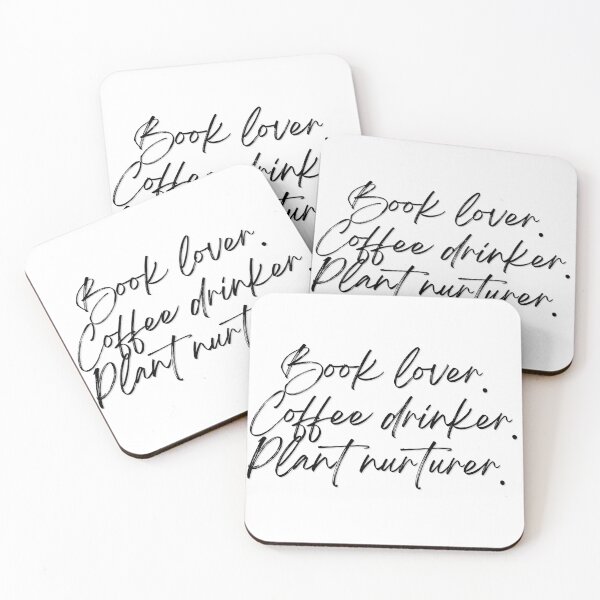 Book lover.
Coffee drink
Book lover.
Coffee drinker.
Plant nurturer.
Book lover.
Coffee drinker.
Plant nurt
Book lover.
Coffee drinker.
Plant nurturer.